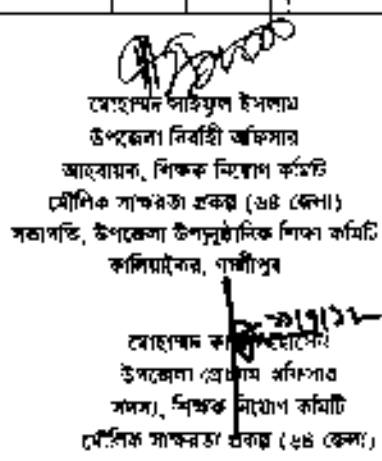 মোহাম্মদ সাইফুল ইসলাম
উপজেলা নির্বাহী অফিসার
আহবায়ক, শিক্ষক নিয়োগ কমিটি
মৌলিক সাক্ষরতা প্রকল্প (৬৪ জেলা)
সভাপতি, উপজেলা উপানুষ্ঠানিক শিক্ষা কমিটি
কালিয়াকৈর, গাজীপুর
মোহাম্মদ হোসেন
উপজেলা প্রোগ্রাম অফিসার
সদস্য, শিক্ষক নিয়োগ কমিটি
মৌলিক সাক্ষরতা প্রকল্প (৬৪ জেলা)